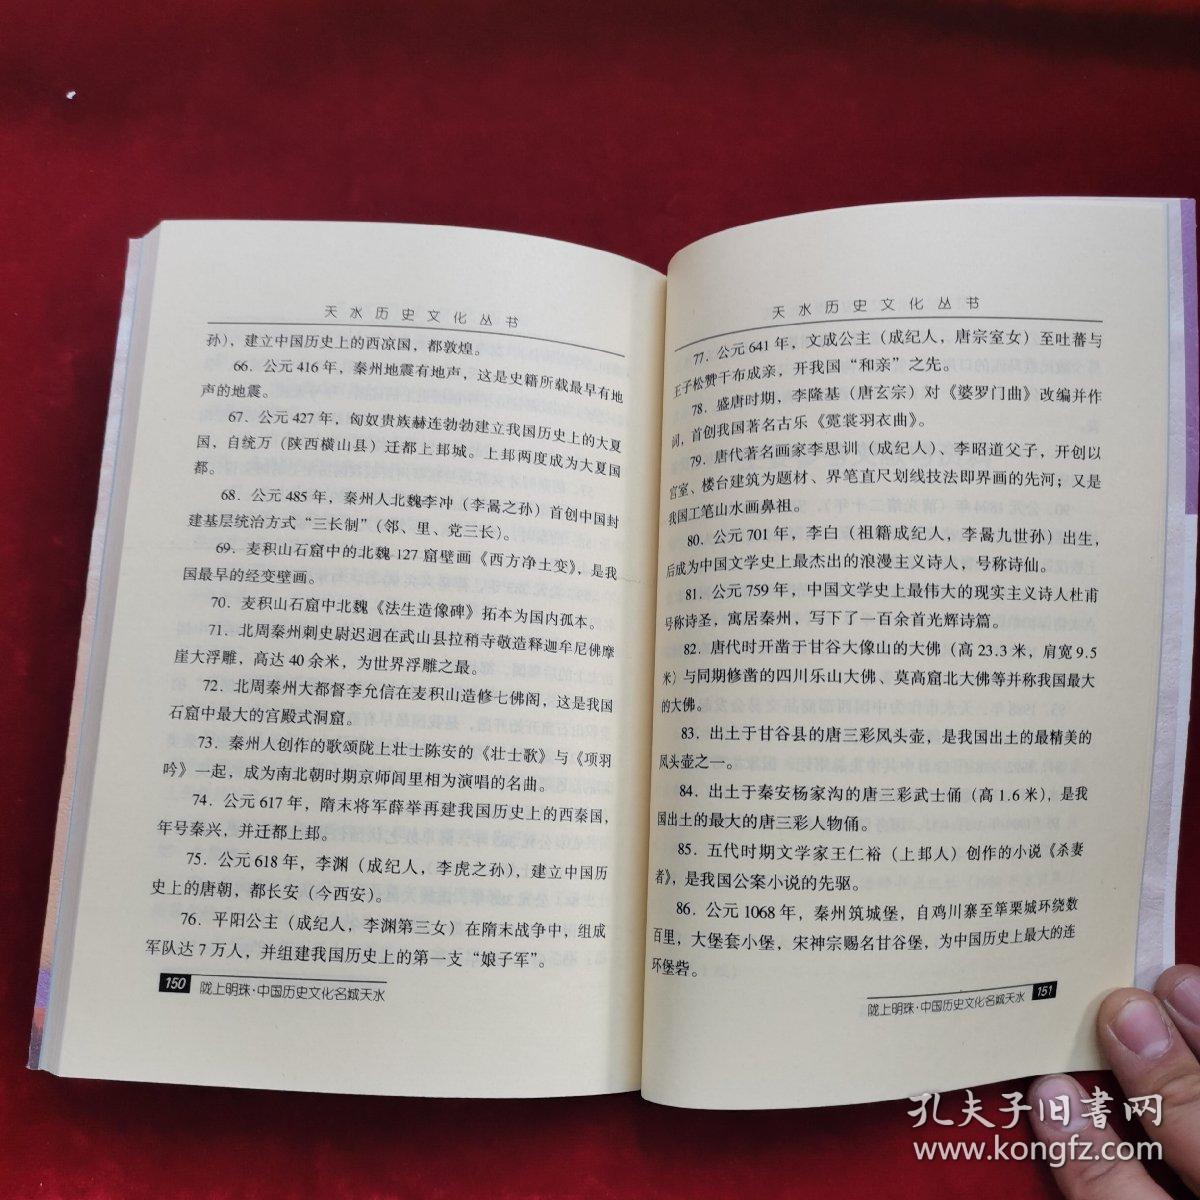 天水历史文化丛书
孙），建立中国历史上的西凉国，都敦煌。
66．公元 416 年，秦州地震有地声，这是史籍所载最早有地
声的地震。
67．公元 427 年，匈奴贵族赫连勃勃建立我国历史上的大夏
国，自统万（陕西横山县）迁都上邽城。上邽两度成为大夏国
都。
68．公元 485 年，秦州人北魏李冲（李暠之孙）首创中国封
建基层统治方式“三长制”（邻、里、党三长）。
69．麦积山石窟中的北魏 127 窟壁画《西方净土变》，是我
国最早的经变壁画。
70．麦积山石窟中北魏《法生造像碑》拓本为国内孤本。
71．北周秦州刺史尉迟迥在武山县拉稍寺敬造释迦牟尼佛摩
崖大浮雕，高达 40 余米，为世界浮雕之最。
72．北周秦州大都督李允信在麦积山造修七佛阁，这是我国
石窟中最大的宫殿式洞窟。
73．秦州人创作的歌颂陇上壮士陈安的《壮士歌》与《项羽
吟》一起，成为南北朝时期京师闾里相为演唱的名曲。
74．公元 617 年，隋末将军薛举再建我国历史上的西秦国，
年号秦兴，并迁都上邽。
75．公元 618 年，李渊（成纪人，李虎之孙），建立中国历
史上的唐朝，都长安（今西安）。
76．平阳公主（成纪人，李渊第三女）在隋末战争中，组成
军队达 7 万人，并组建我国历史上的第一支“娘子军”。
150 陇上明珠·中国历史文化名城天水
天水历史文化丛书
77．公元 641 年，文成公主（成纪人，唐宗室女）至吐蕃与
王子松赞干布成亲，开我国“和亲”之先。
78．盛唐时期，李隆基（唐玄宗）对《婆罗门曲》改编并作
词，首创我国著名古乐《霓裳羽衣曲》。
79．唐代著名画家李思训（成纪人）、李昭道父子，开创以
宫室、楼台建筑为题材、界笔直尺划线技法即界画的先河；又是
我国工笔山水画鼻祖。
80．公元 701 年，李白（祖籍成纪人，李暠九世孙）出生，
后成为中国文学史上最杰出的浪漫主义诗人，号称诗仙。
81．公元 759 年，中国文学史上最伟大的现实主义诗人杜甫
号称诗圣，寓居秦州，写下了一百余首光辉诗篇。
82．唐代时开凿于甘谷大像山的大佛（高 23.3 米，肩宽 9.5
米）与同期修凿的四川乐山大佛、莫高窟北大佛等并称我国最大
的大佛。
83．出土于甘谷县的唐三彩凤头壶，是我国出土的最精美的
凤头壶之一。
84．出土于秦安杨家沟的唐三彩武士俑（高 1.6 米），是我
国出土的最大的唐三彩人物俑。
85．五代时期文学家王仁裕（上邽人）创作的小说《杀妻
者》，是我国公案小说的先驱。
86．公元 1068 年，秦州筑城堡，自鸡川寨至筚栗城环绕数
百里，大堡套小堡，宋神宗赐名甘谷堡，为中国历史上最大的连
环堡砦。
陇上明珠·中国历史文化名城天水 151
孔夫子旧书网
www.kongfz.com